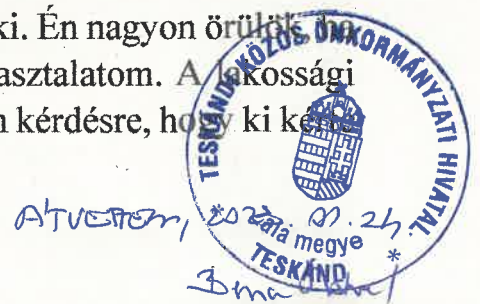 ki. Én nagyon örülök, ha
asztalatom. A lakossági
kérdésre, hogy ki kérte
TESKÁNDI KÖZÖS ÖNKORMÁNYZATI HIVATAL
Zala megye
* TESKÁND *
ÁTVETTEM, 01. 24.